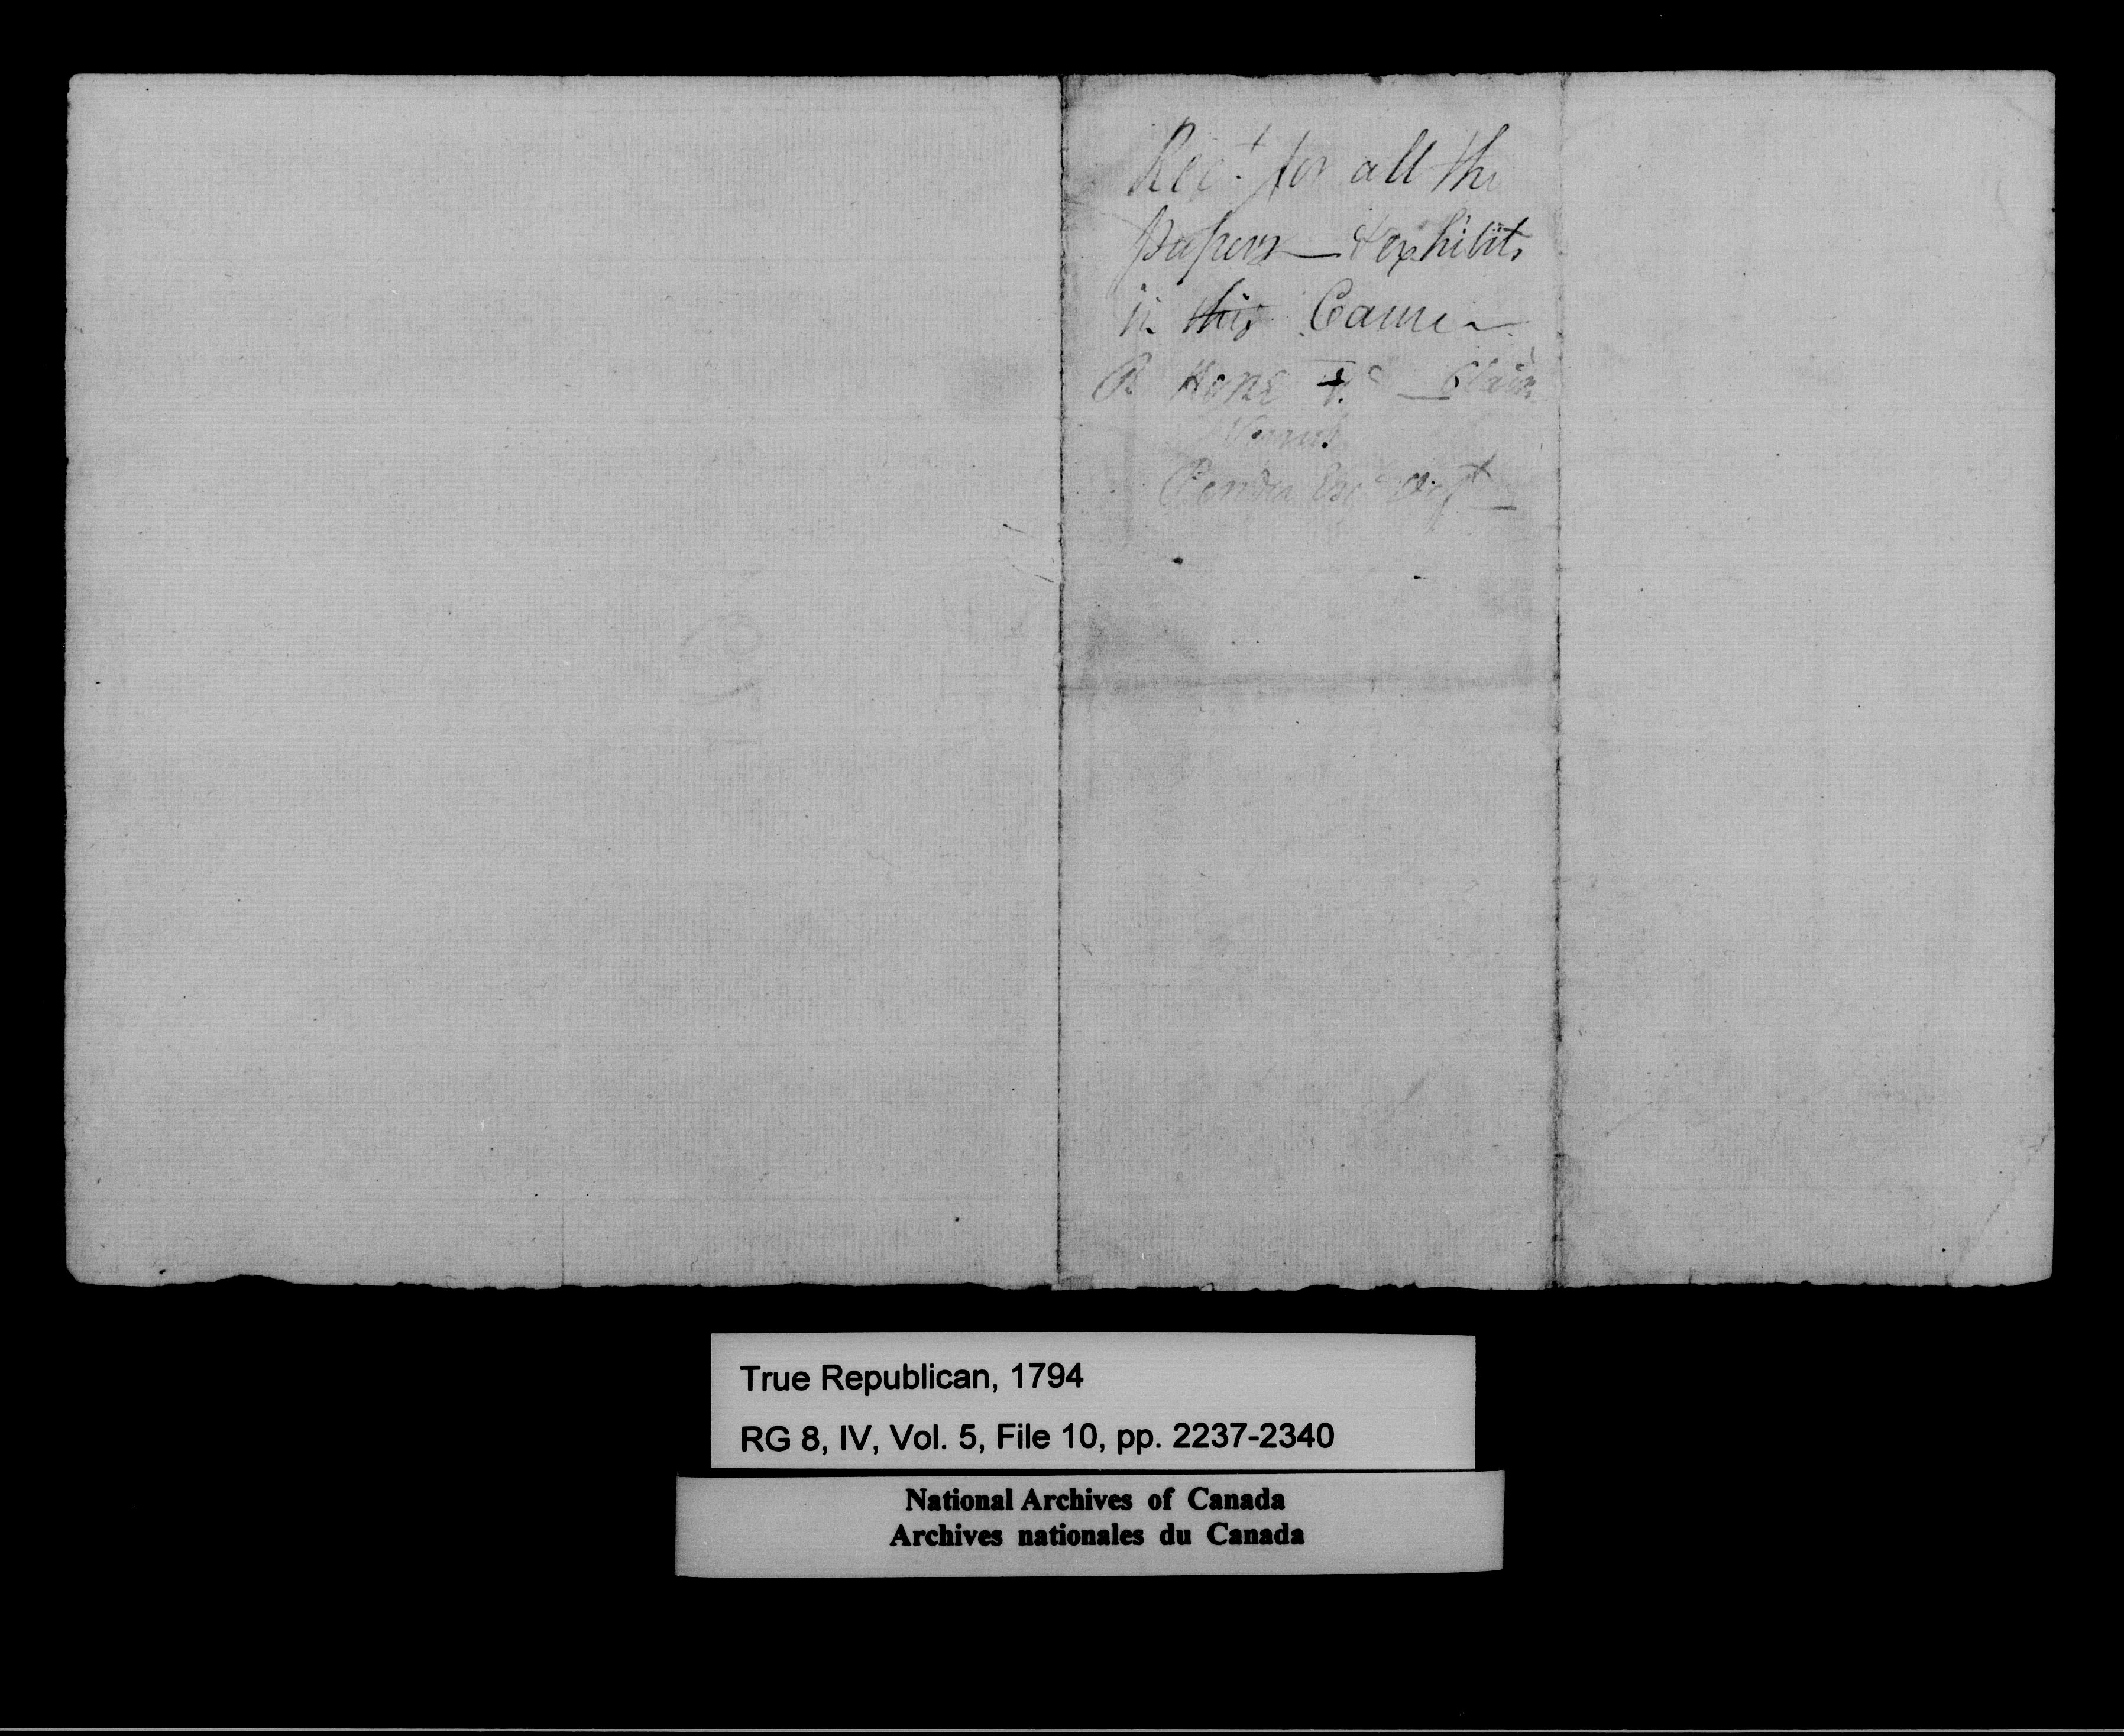 Rec.t for all the
papers — & exhibits
in this Cause
Versus
True Republican, 1794
RG 8, IV, Vol. 5, File 10, pp. 2237-2340
National Archives of Canada
Archives nationales du Canada